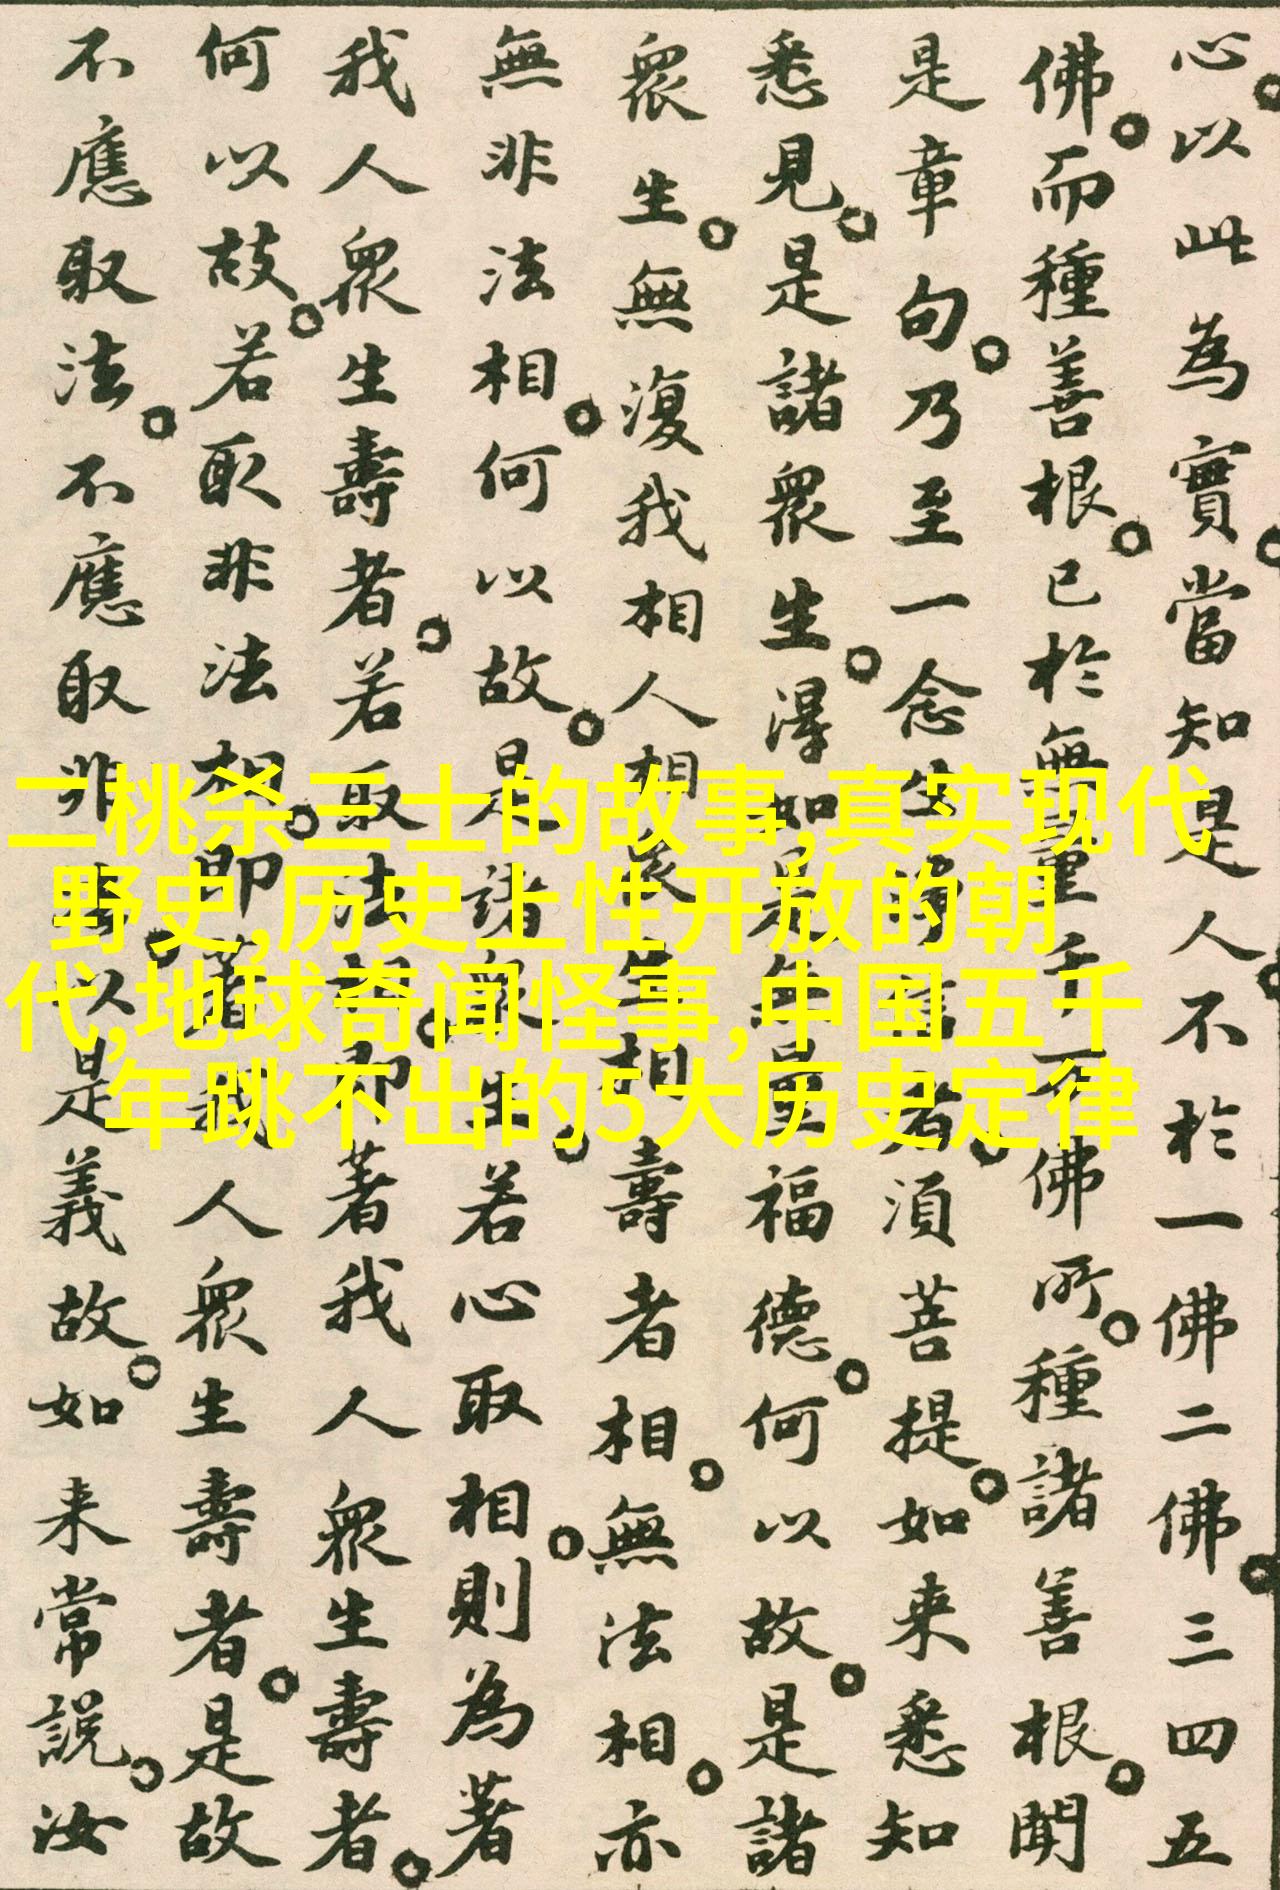 心以此為實當知是人不於一佛二佛三四五
佛而種善根已於無量千万佛所種諸善根聞
是章句乃至一念生淨信者須菩提如来悉知
悉見是諸衆生得如是無量福德何以故是諸
衆生無復我相人相衆生相壽者相無法相亦
無非法相何以故是諸衆生若心取相則為著
我人衆生壽者若取法相即著我人衆生壽者
何以故若取非法相即著我人衆生壽者是故
不應取法不應取非法以是義故如来常說汝
二桃杀三士的故事,真实现代
野史,历史上性开放的朝
代,地球奇闻怪事,中国五千
年跳不出的5大历史定律